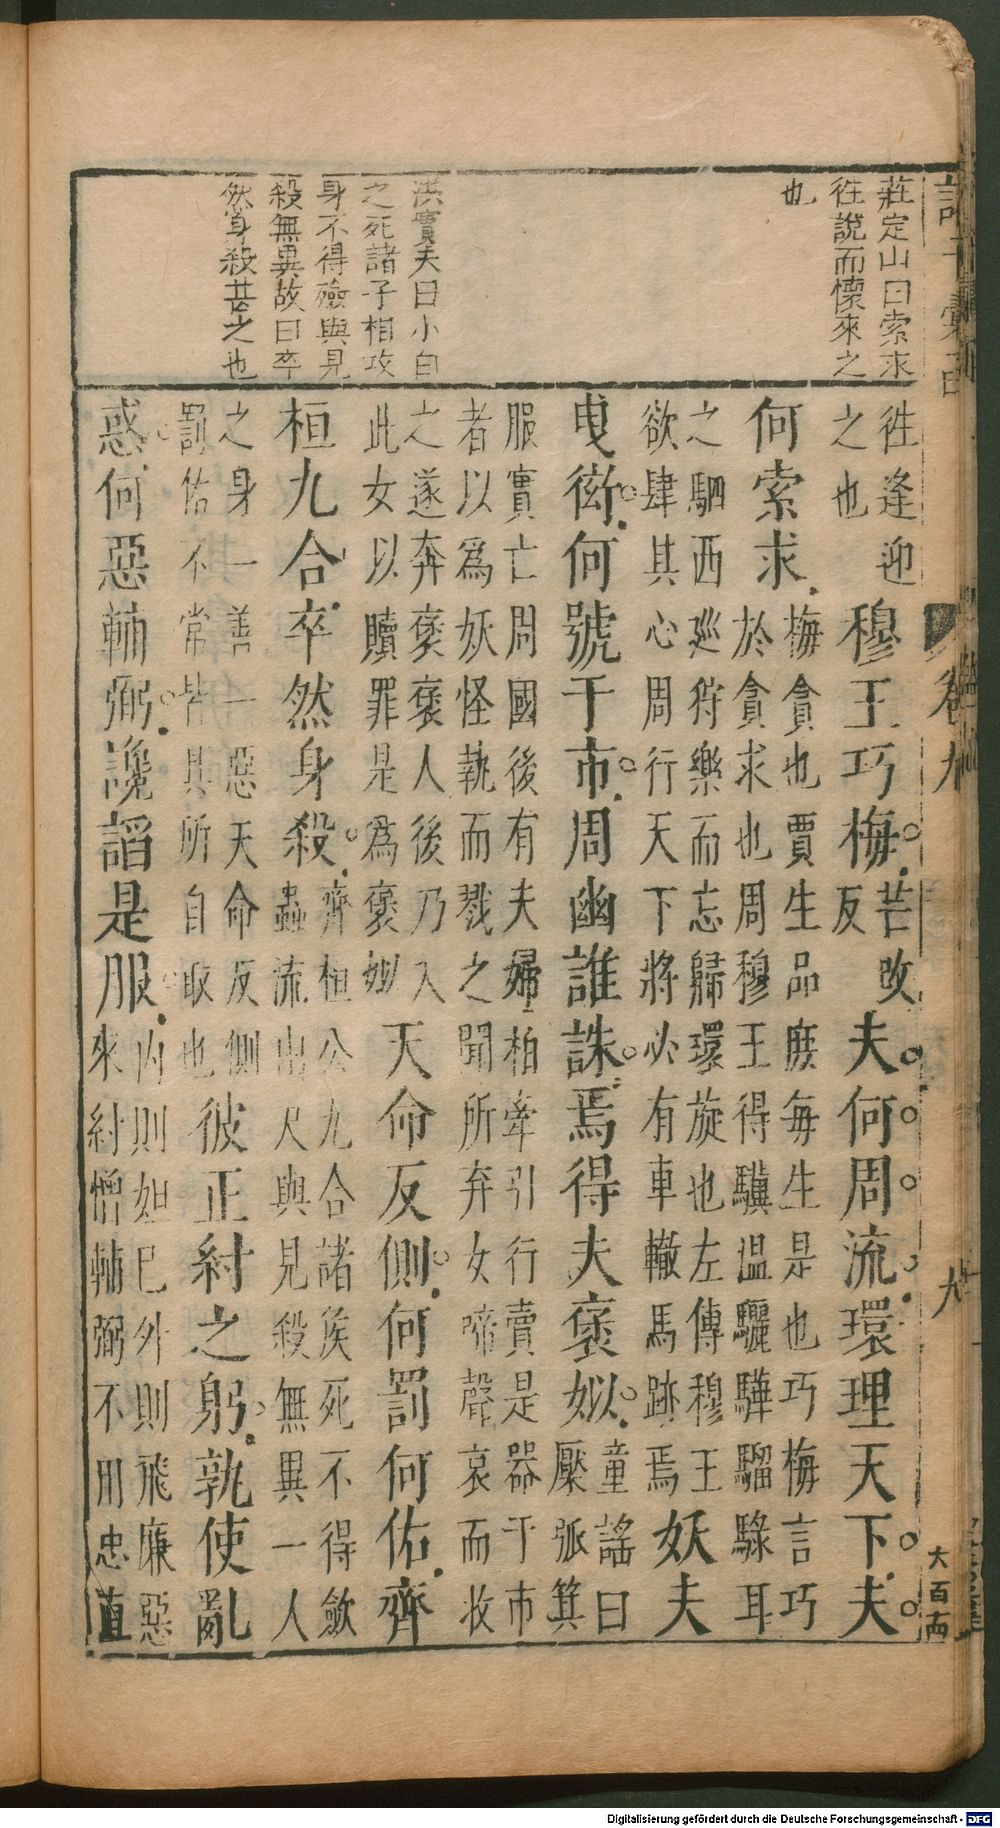 莊定山曰索求
徃說而懷來之
也
洪實夫曰小白
之死諸子相攻
身不得殮與見
殺無異故曰卒
然身殺甚之也
卷九
九
大百両
徃逢迎
之也
穆王巧梅
苦改
反
夫何周流環理天下夫
何索求
梅貪也賈生品庶每生是也巧梅言巧
於貪求也周穆王得驥温驪驊騮騄耳
之駟西廵狩樂而忘歸環旋也左傳穆王
欲肆其心周行天下將必有車轍馬跡焉
妖夫
曳衒何號于市周幽誰誅焉得夫褒姒
童謠曰
檿弧箕
服實亡周國後有夫婦相牽引行賣是器于市
者以爲妖怪執而戮之聞所弃女啼聲哀而收
之遂奔褒褒人後乃入
此女以贖罪是爲褒姒
天命反側何罰何佑齊
桓九合卒然身殺
齊桓公九合諸侯死不得斂
蟲流出尸與見殺無異一人
之身一善一惡天命反側
罰佑不常皆其所自取也
彼正紂之躬孰使亂
惑何惡輔弼讒謟是服
內則妲已外則飛廉惡
來紂憎輔弼不用忠直
Digitalisierung gefördert durch die Deutsche Forschungsgemeinschaft - DFG